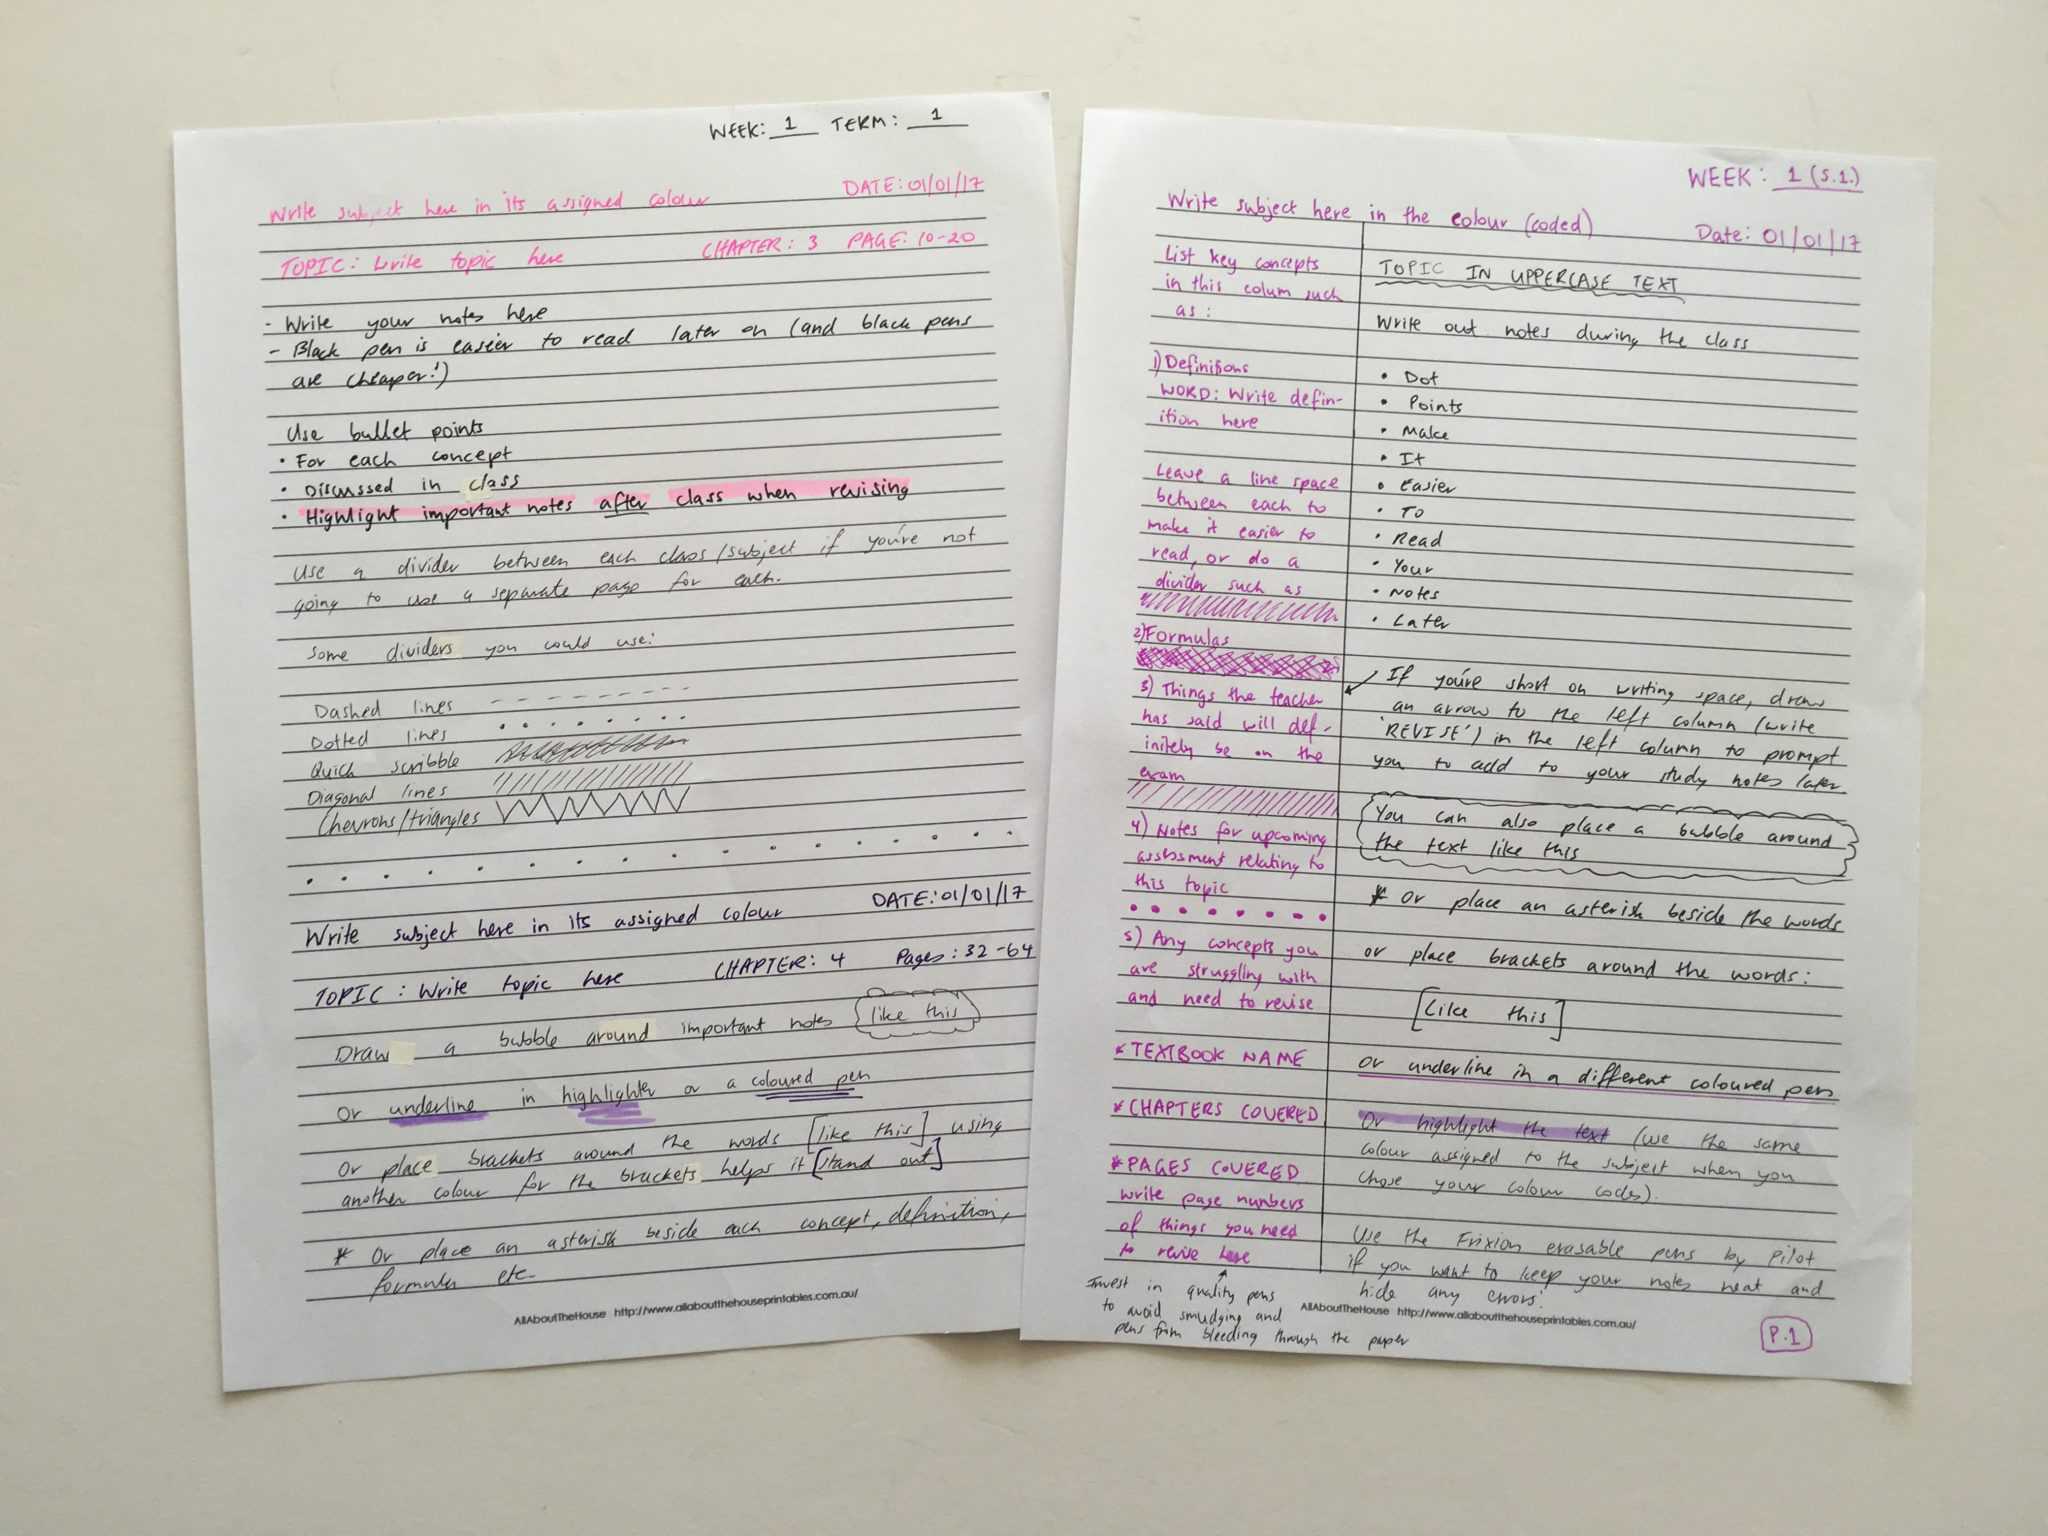 WEEK: 1 TERM: 1
Write subject here in its assigned colour DATE: 01/01/17
TOPIC: Write topic here CHAPTER: 3 PAGE: 10-20
- Write your notes here
- Black pen is easier to read later on (and black pens
are cheaper!)
Use bullet points
• For each concept
• Discussed in class
• Highlight important notes after class when revising
Use a divider between each class/subject if you're not
going to use a separate page for each.
Some dividers you could use:
Dashed lines
Dotted lines
Quick scribble
Diagonal lines
Chevrons/triangles
Write subject here in its assigned colour DATE: 01/01/17
TOPIC: Write topic here CHAPTER: 4 Pages: 32-64
Draw a bubble around important notes like this
Or underline in highlighter or a coloured pen
Or place brackets around the words [like this] using
another colour for the brackets helps it [stand out]
* Or place an asterisk beside each concept, definition,
formula etc.
AllAboutTheHouse http://www.allaboutthehouseprintables.com.au/
WEEK: 1 (S.1.)
Write subject here in the colour (coded)
Date: 01/01/17
List key concepts
in this colum such
as:
1) Definitions
WORD: Write defin-
ition here
Leave a line space
between each to
make it easier to
read, or do a
divider such as
2) Formulas
3) Things the teacher
has said will def-
initely be on the
exam
4) Notes for upcoming
assessment relating to
this topic
5) Any concepts you
are struggling with
and need to revise
* TEXTBOOK NAME
* CHAPTERS COVERED
* PAGES COVERED
write page numbers
of things you need
to revise here
TOPIC IN UPPERCASE TEXT
Write out notes during the class
• Dot
• Points
• Make
• It
• Easier
• To
• Read
• Your
• Notes
• Later
If you're short on writing space, draw
an arrow to the left column (write
'REVISE') in the left column to prompt
you to add to your study notes later
You can also place a bubble around
the text like this
* Or place an asterisk beside the words
or place brackets around the words:
[Like this]
Or underline in a different coloured pen
Or highlight the text (use the same
colour assigned to the subject when you
chose your colour codes).
Use the Frixion erasable pens by Pilot
if you want to keep your notes neat and
hide any errors!
Invest in quality pens
to avoid smudging and
pens from bleeding through the paper
AllAboutTheHouse http://www.allaboutthehouseprintables.com.au/
P.1